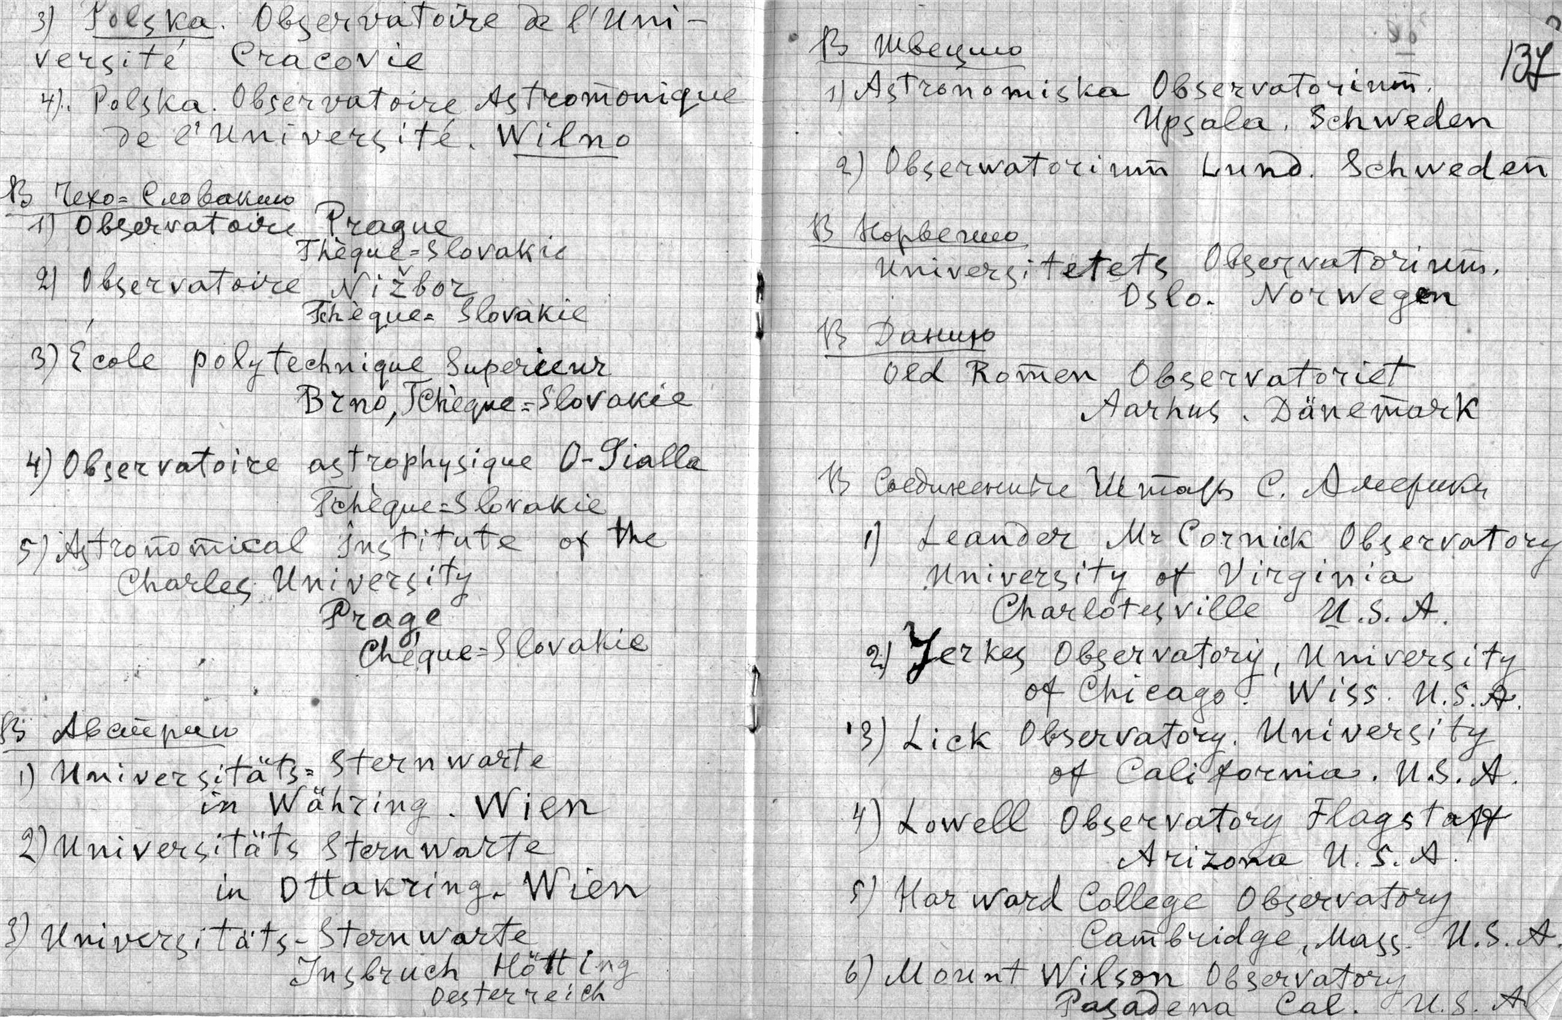 3) Polska. Observatoire de l'Uni-
versité Cracovie
4). Polska. Observatoire Astromonique
de l'Université. Wilno
В Чехо=Словакию
1) Observatoire Prague
Thèque=Slovakie
2) Observatoire Nižbor
Tchèque=Slovakie
3) École polytechnique Superieur
Brno, Tchèque=Slovakie
4) Observatoire astrophysique O-Gialla
Tchèque=Slovakie
5) Astronomical Institute of the
Charles University
Prage
Chéque=Slovakie
В Австрию
1) Universitäts=Sternwarte
in Währing. Wien
2) Universitäts Sternwarte
in Ottakring. Wien
3) Universitäts-Sternwarte
Insbruch Hötting
Oesterreich
137
В Швецию
1) Astronomiska Observatorium.
Upsala. Schweden
2) Obserwatorium Lund. Schweden
В Норвегию
Universitetets Observatorium.
Oslo. Norwegen
В Данию
Old Romen Observatoriet
Aarhus. Dänemark
В Соединение Штать С. Америки
1) Leander Mc Cornick Observatory
University of Virginia
Charlotesville U.S.A.
2) Yerkes Observatory, University
of Chicago. Wiss. U.S.A.
3) Lick Observatory. University
of California. U.S.A.
4) Lowell Observatory Flagstaff
Arizona U.S.A.
5) Harward College Observatory
Cambridge, Mass. U.S.A.
6) Mount Wilson Observatory
Pasadena Cal. U.S.A